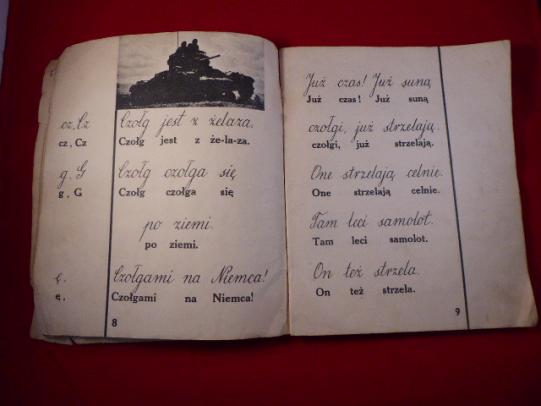 cz, Cz
Czołg jest z żelaza.
cz, Cz
Czołg jest z że-la-za.
g. G
Czołg czołga się
g, G
Czołg czołga się
po ziemi.
po ziemi.
ę.
Czołgami na Niemca!
ę,
Czołgami na Niemca!
8
Już czas! Już suną
Już czas! Już suną
czołgi, już strzelają.
czołgi, już strzelają.
One strzelają celnie.
One strzelają celnie.
Tam leci samolot.
Tam leci samolot.
On też strzela.
On też strzela.
9